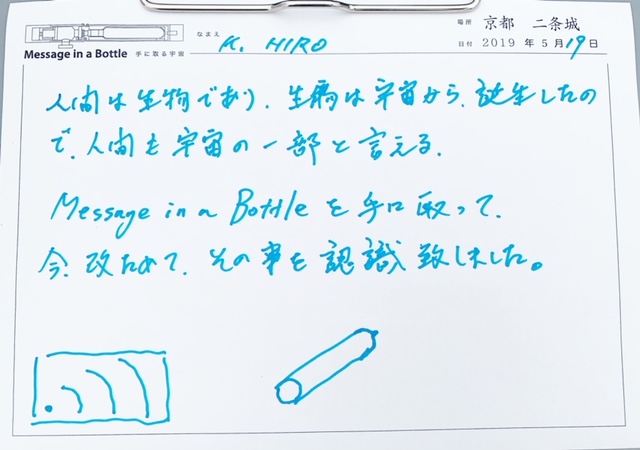 なまえ K. HIRO
場所 京都 二条城
Message in a Bottle 手に取る宇宙
日付 2019年5月19日
人間は生物であり、生物は宇宙から、誕生したの
で、人間も宇宙の一部と言える。
Message in a Bottleを手に取って、
今、改ためて、その事を認識致しました。